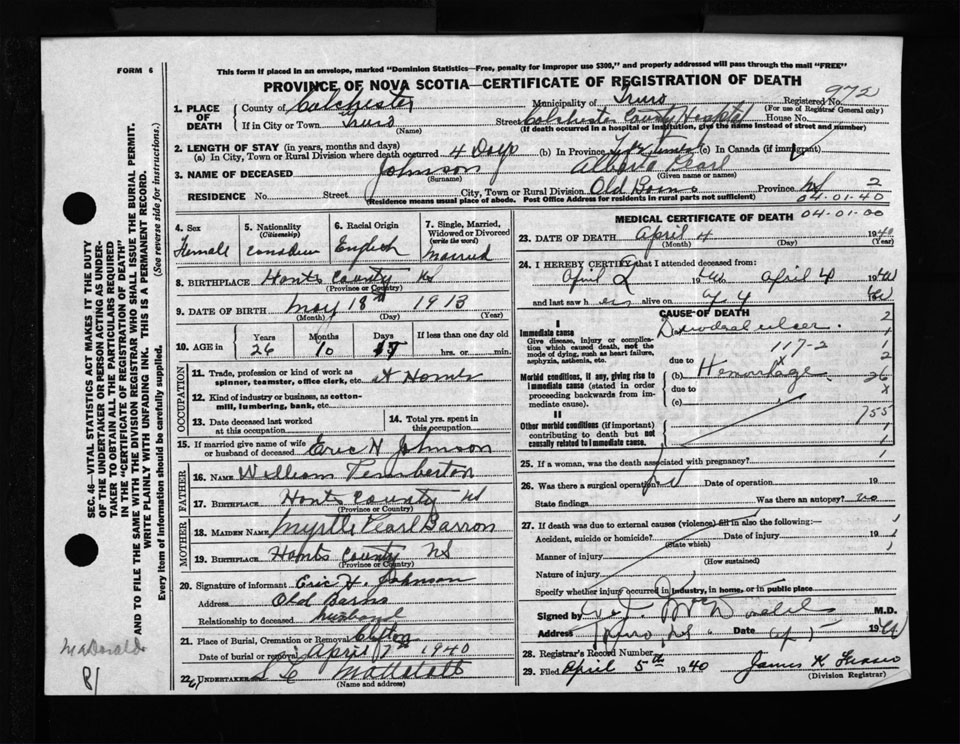 FORM 6
This form if placed in an envelope, marked "Dominion Statistics—Free, penalty for improper use $300," and properly addressed will pass through the mail "FREE"
PROVINCE OF NOVA SCOTIA—CERTIFICATE OF REGISTRATION OF DEATH
Registered No. 972
(For use of Registrar General only)
1. PLACE OF DEATH County of Colchester Municipality of Truro
If in City or Town Truro (Name) Street Colchester County Hospital House No.
(If death occurred in a hospital or institution, give the name instead of street and number)
2. LENGTH OF STAY (in years, months and days)
(a) In City, Town or Rural Division where death occurred 4 Days (b) In Province Life time (c) In Canada (if immigrant)
3. NAME OF DECEASED Johnson (Surname) Alberta Pearl (Given name or names)
RESIDENCE No. Street City, Town or Rural Division Old Barns Province NS 2
(Residence means usual place of abode. Post Office Address for residents in rural parts not sufficient)
04-01-40
04-01-00
4. Sex Female
5. Nationality (Citizenship)
6. Racial Origin English
7. Single, Married, Widowed or Divorced (write the word) Married
8. BIRTHPLACE Hants County NS
(Province or Country)
9. DATE OF BIRTH May 18th 1913
(Month) (Day) (Year)
10. AGE in Years 26 Months 10 Days 17 If less than one day old hrs. or min.
OCCUPATION
11. Trade, profession or kind of work as spinner, teamster, office clerk, etc. at Home
12. Kind of industry or business, as cotton-mill, lumbering, bank, etc.
13. Date deceased last worked at this occupation
14. Total yrs. spent in this occupation
15. If married give name of wife or husband of deceased Eric H Johnson
FATHER
16. NAME William Pemberton
17. BIRTHPLACE Hants County NS
(Province or Country)
MOTHER
18. MAIDEN NAME Myrtle Pearl Barron
19. BIRTHPLACE Hants County NS
(Province or Country)
20. Signature of informant Eric H. Johnson
Address Old Barns
Relationship to deceased husband
21. Place of Burial, Cremation or Removal Clifton
Date of burial or removal April 7th 1940
22. UNDERTAKER
(Name and address)
MEDICAL CERTIFICATE OF DEATH
23. DATE OF DEATH April 4 1940
(Month) (Day) (Year)
24. I HEREBY CERTIFY that I attended deceased from:
April 2 1940 April 4 1940
and last saw her alive on Ap 4 1940
CAUSE OF DEATH
I
Immediate cause Duodenal ulcer.
Give disease, injury or complication which caused death, not the mode of dying, such as heart failure, asphyxia, asthenia, etc.
117-2
due to
Morbid conditions, if any, giving rise to immediate cause (stated in order proceeding backwards from immediate cause).
(b) Hemorrhage
due to
(c)
II
Other morbid conditions (if important) contributing to death but not causally related to immediate cause.
2
1
1
2
26
X
755
1
1
25. If a woman, was the death associated with pregnancy?
26. Was there a surgical operation? Date of operation 19
State findings Was there an autopsy? no
27. If death was due to external causes (violence) fill in also the following:—
Accident, suicide or homicide? Date of injury 19
(State which)
Manner of injury
(How sustained)
Nature of injury
Specify whether injury occurred in industry, in home, or in public place
Signed by M.D.
Address Truro NS Date Ap 5 1940
28. Registrar's Record Number
29. Filed April 5th 1940 James K Fraser
(Division Registrar)
SEC. 46—VITAL STATISTICS ACT MAKES IT THE DUTY
OF THE UNDERTAKER OR PERSON ACTING AS UNDER-
TAKER TO OBTAIN ALL THE PARTICULARS REQUIRED
IN THE "CERTIFICATE OF REGISTRATION OF DEATH"
AND TO FILE THE SAME WITH THE DIVISION REGISTRAR WHO SHALL ISSUE THE BURIAL PERMIT.
WRITE PLAINLY WITH UNFADING INK. THIS IS A PERMANENT RECORD.
Every item of information should be carefully supplied. (See reverse side for instructions.)
MacDonald